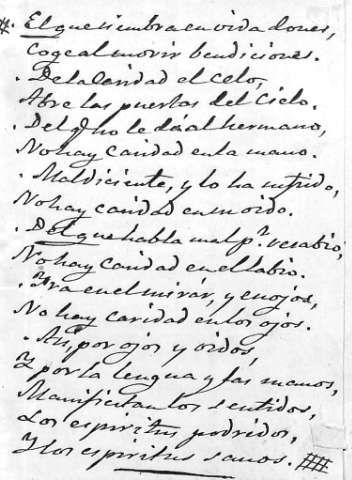 # . El que siembra en vida dones,
Coge al morir bendiciones.
. De la Caridad el Celo,
Abre las puertas del Cielo.
. Del q.e no le dá al hermano,
No hay Caridad en la mano.
. Maldiciente, y lo ha sufrido,
No hay caridad en su oido.
. Del que habla mal p.r resabio,
No hay Caridad en el labio.
. Ira en el mirár, y enojos,
No hay caridad en los ojos.
. Asi, por ojos y oidos,
Y por la lengua y las manos,
Manifiestan los sentidos,
Los espiritus podridos,
Y los espiritus sanos. ##